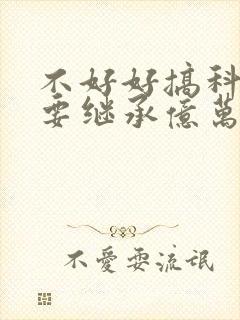 不好好搞科
要继承億萬
不愛耍流氓